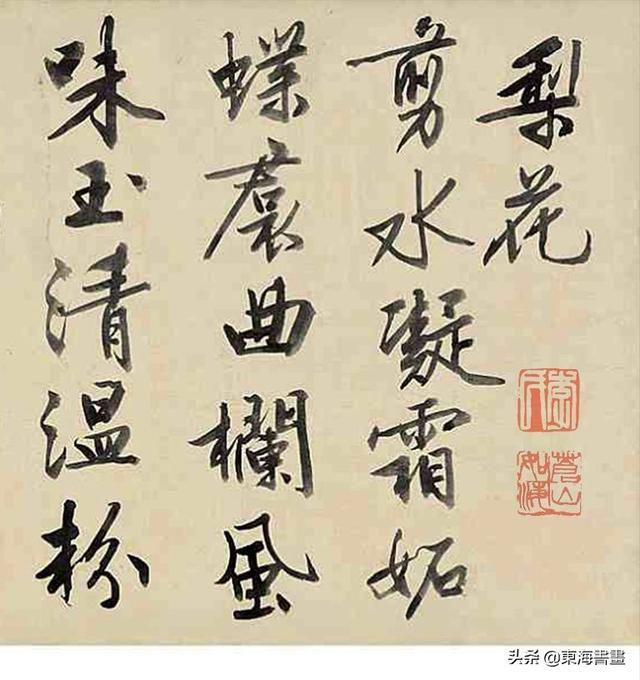 梨花
剪水凝霜妬
蝶裠曲欄風
味玉清温粉
蒼山
如海
头条 @東海書畫